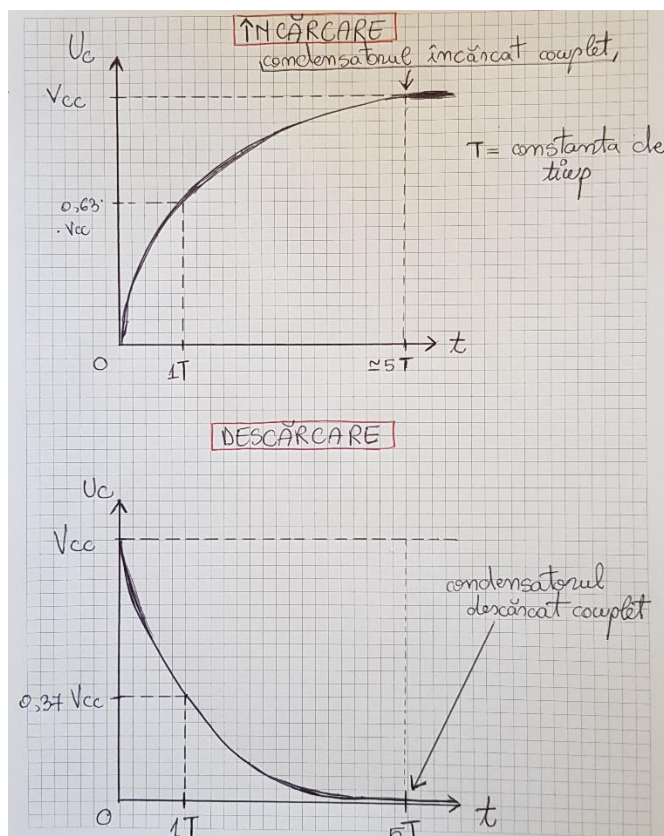 ÎNCĂRCARE
Uc
condensatorul încărcat complet,
Vcc
T = constanta de
timp
0,63·
·Vcc
0
1T
≃5T
t
DESCĂRCARE
Uc
Vcc
condensatorul
descărcat complet
0,37 Vcc
0
1T
5T
t